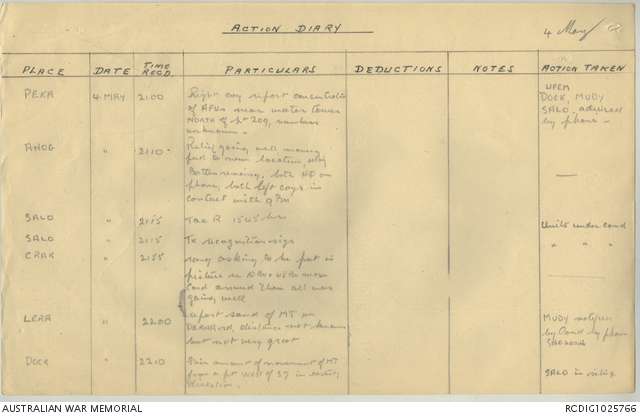 ACTION DIARY
4 May
PLACE DATE TIME RECD. PARTICULARS DEDUCTIONS NOTES ACTION TAKEN
PEKA 4 MAY 2100 Right coy report concentration
of AFVs near water tower
NORTH of pt 209, numbers
unknown.
UREM
DOCK, MUDY
SALO, advised
by phone -
ANOG " 2110 Relief going well moving
fwd to new location, only
remaining, both HQ on
phone, both left coys in
contact with 9 Bn
—
SALO 2115 Tac R 1545 hrs Units under comd
SALO " 2115 To recognition sigs " " "
CRAK " 2155 asking to be put in
picture
around them all was
going well
LERA " 2200 report sound of MT on
distance not known
but not very great
MUDY notified
by by phone
DOCK " 2210 Fair amount of movement of MT
from a pt west of 27 in
direction.
SALO
AUSTRALIAN WAR MEMORIAL RCDIG1025766